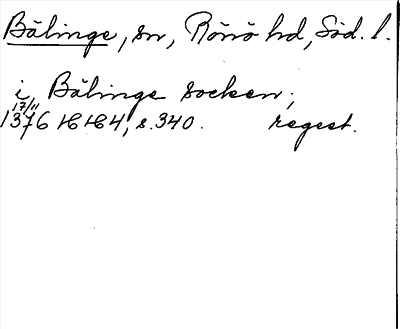 Bälinge, sn, Rönö hd, Söd. l.
i Bälinge socken;
17/11
1376 HH 4, s. 340. regest.